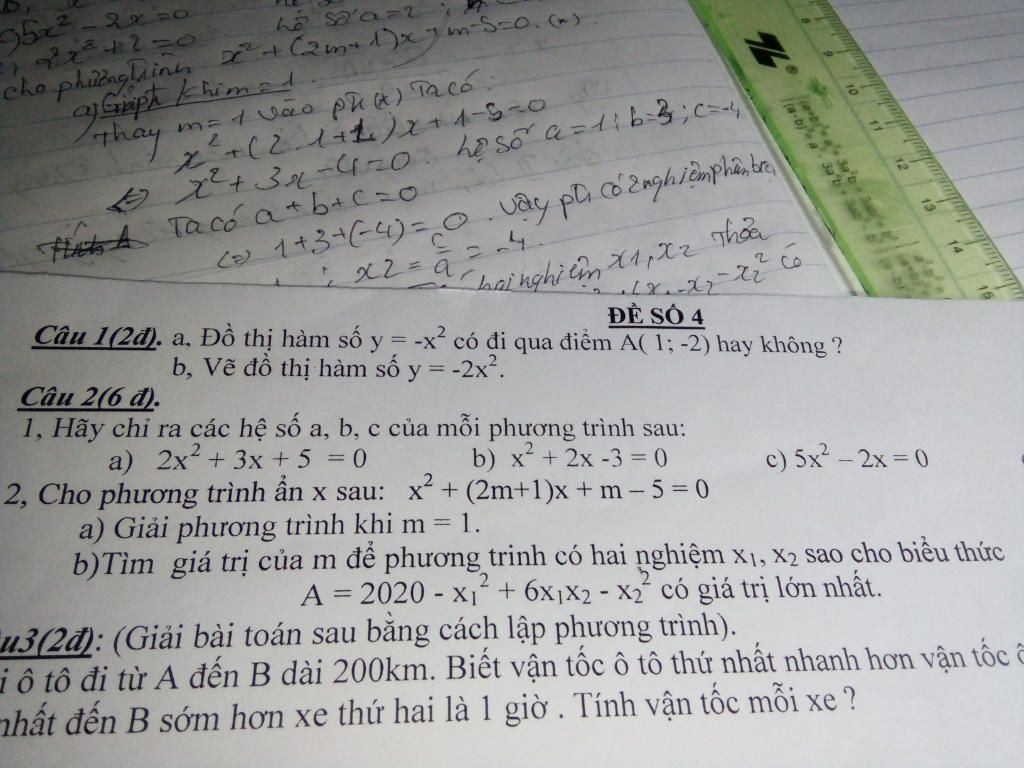 5x² - 2x = 0 hệ số a = 2 ;
2x² + 2 = 0
cho phương trình x² + (2m+1)x + m - 5 = 0. (*)
a) Giải pt khi m = 1.
Thay m = 1 vào pt (*) Ta có :
x² + (2.1+1)x + 1 - 5 = 0
⇔ x² + 3x - 4 = 0. hệ số a = 1 ; b = 3 ; c = -4
Ta có a + b + c = 0
(=) 1 + 3 + (-4) = 0. Vậy pt có 2 nghiệm phân biệt
x2 = c/a = -4.
hai nghiệm x1, x2 Thỏa
- x2² có
8
9
10
11
12
13
14
15
ĐỀ SỐ 4
Câu 1(2đ). a, Đồ thị hàm số y = -x² có đi qua điểm A( 1; -2) hay không ?
b, Vẽ đồ thị hàm số y = -2x².
Câu 2(6 đ).
1, Hãy chỉ ra các hệ số a, b, c của mỗi phương trình sau:
a) 2x² + 3x + 5 = 0 b) x² + 2x -3 = 0 c) 5x² – 2x = 0
2, Cho phương trình ẩn x sau: x² + (2m+1)x + m – 5 = 0
a) Giải phương trình khi m = 1.
b)Tìm giá trị của m để phương trinh có hai nghiệm x₁, x₂ sao cho biểu thức
A = 2020 - x₁² + 6x₁x₂ - x₂² có giá trị lớn nhất.
u3(2đ): (Giải bài toán sau bằng cách lập phương trình).
i ô tô đi từ A đến B dài 200km. Biết vận tốc ô tô thứ nhất nhanh hơn vận tốc ô
nhất đến B sớm hơn xe thứ hai là 1 giờ . Tính vận tốc mỗi xe ?